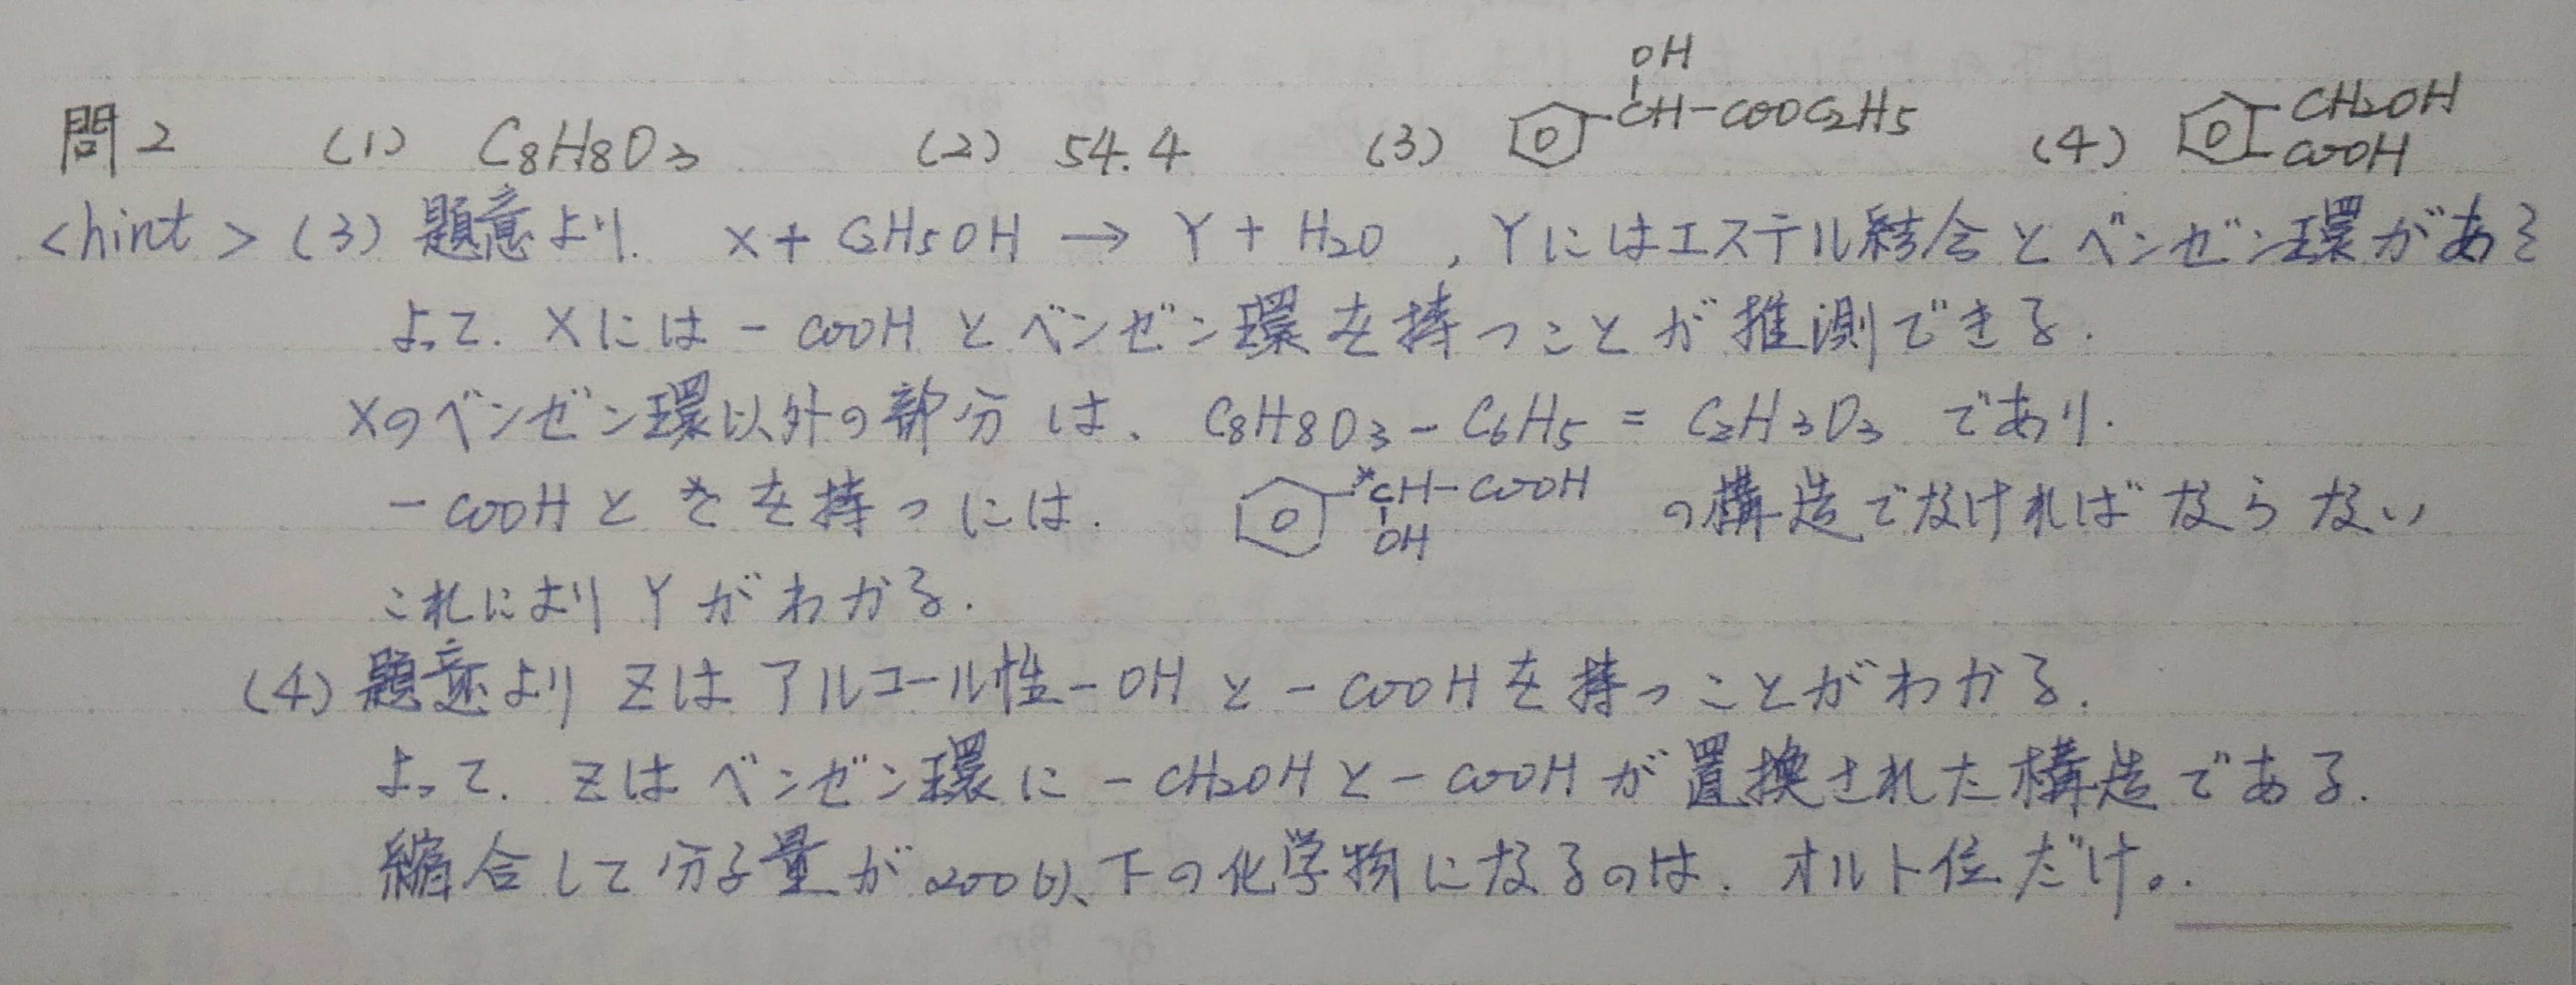 問2 (1) C8H8O3 (2) 54.4 (3) OH CH-COOC2H5 (4) CH2OH COOH
<hint> (3) 題意より. X + C2H5OH → Y + H2O , Yにはエステル結合とベンゼン環がある
よって. Xには - COOH とベンゼン環を持つことが推測できる.
Xのベンゼン環以外の部分は、 C8H8O3 - C6H5 = C2H3O3 であり.
- COOH と *Cを持つには. *CH-COOH OH の構造でなければならない
これによりYがわかる.
(4) 題意より Zは アルコール性-OHと-COOHを持つことがわかる.
よって. Zはベンゼン環に -CH2OHと-COOHが置換された構造である.
縮合して分子量が200以下の化学物になるのは. オルト位だけ。.